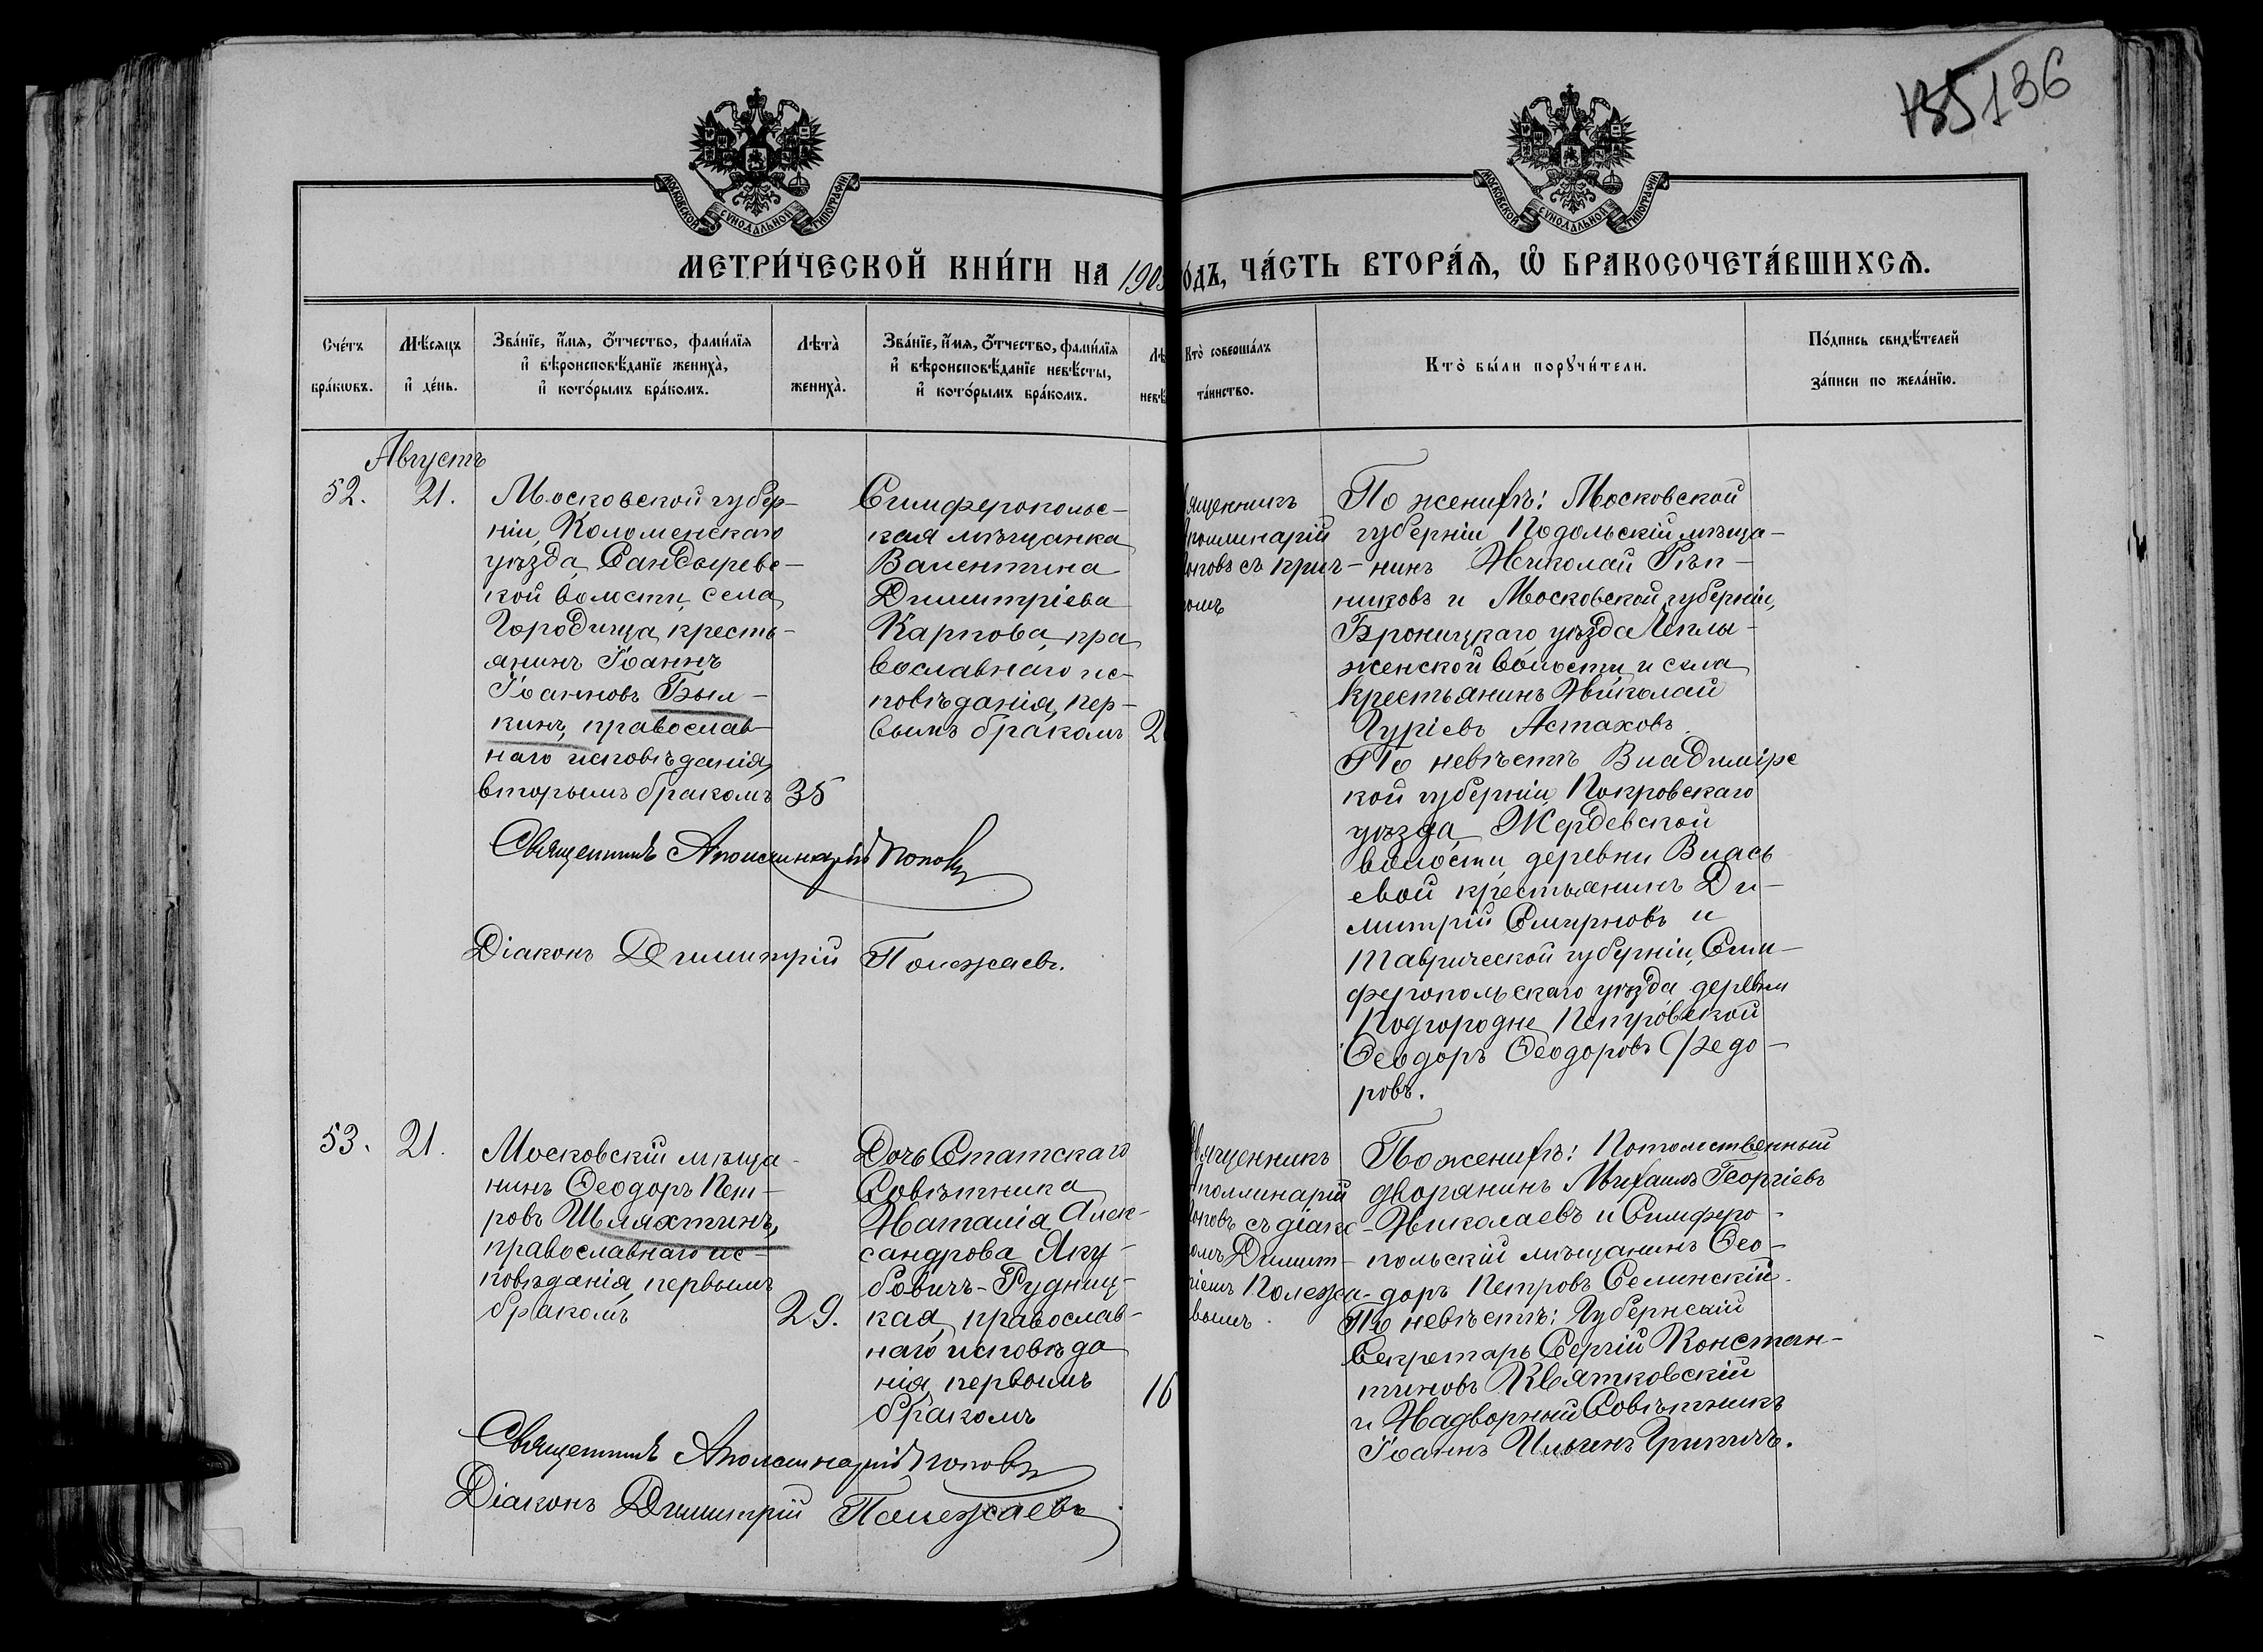 135 136
МОСКОВСКОЙ СѴНОДАЛЬНОЙ ТИПОГРАФІИ
МОСКОВСКОЙ СѴНОДАЛЬНОЙ ТИПОГРАФІИ
МЕТРИ́ЧЕСКОЙ КНИ́ГИ НА 1905
О́ДЪ, ЧА́СТЬ ВТОРА́Ѧ, Ѽ БРАКОСОЧЕТА́ВШИХСѦ.
Сче́тъ
бра́кѡвъ.
Мѣ́сѧцъ
и҆ де́нь.
Зва́нїе, и҆́мѧ, ѻ҆́тчество, фами́лїѧ
и҆ вѣроисповѣ́данїе жениха̀,
и҆ кото́рымъ бра́комъ.
Лѣта̀
жениха̀.
Зва́нїе, и҆́мѧ, ѻ҆́тчество, фами́лїѧ
и҆ вѣроисповѣ́данїе невѣ́сты,
и҆ кото́рымъ бра́комъ.
Лѣ
невѣ́
Кто̀ соверша́лъ
та́инство.
Кто̀ бы́ли порꙋчи́тели.
По́дпись свидѣ́телей
за́писи по жела́нїю.
Августъ
52.
21.
Московской губер-
ніи, Коломенскаго
уѣзда, Сандыревс-
кой волости, села
Городища, кресть-
янинъ Іоаннъ
Іоанновъ Был-
кинъ, православ-
наго исповѣданія,
вторымъ бракомъ
35
Симферопольс-
кая мѣщанка
Валентина
Димитріева
Карпова, пра
вославнаго ис-
повѣданія, пер-
вымъ бракомъ
2
вященникъ
Аполлинарій
оповъ съ прич-
томъ
По женихѣ: Московской
губерніи Подольскій мѣща-
нинъ Николай Рѣп-
никовъ и Московской губерніи,
Броницкаго уѣзда
женской волости, и села
крестьянинъ Николай
Гуріевъ Астаховъ.
По невѣстѣ Владимірс
кой губерніи, Покровскаго
уѣзда, Жердевской
волости, деревни Влась
евой крестьянинъ Ди-
митрій Смирновъ и
Таврической губерніи, Сим-
феропольскаго уѣзда деревни
Подгородне Петровской
Ѳеодоръ Ѳеодоровъ Федо-
ровъ.
Священникъ Аполлинарій Поповъ
Діаконъ Димитрій Полежаевъ.
53.
21.
Московскій мѣща-
нинъ Ѳеодоръ Пет-
ровъ Шляхтинъ,
православнаго ис-
повѣданія, первымъ
бракомъ
29.
Дочь Статскаго
Совѣтника
Наталія Алек-
сандрова Яку-
бовичъ-Рудниц-
кая, православ-
наго исповѣда
нія, первымъ
бракомъ
16
вященникъ
Аполлинарій
оповъ съ діако-
омъ Димит-
ріемъ Полежа-
вымъ.
По женихѣ: Потомственный
дворянинъ Михаилъ Георгіевъ
Николаевъ и Симферо-
польскій мѣщанинъ Ѳео-
доръ Петровъ Селинскій.
По невѣстѣ: Губернскій
Секретарь Сергій Констан-
тиновъ Квятковскій
и Надворный Совѣтникъ
Іоаннъ Ильинъ
Священникъ Аполлинарій Поповъ
Діаконъ Димитрій Полежаевъ